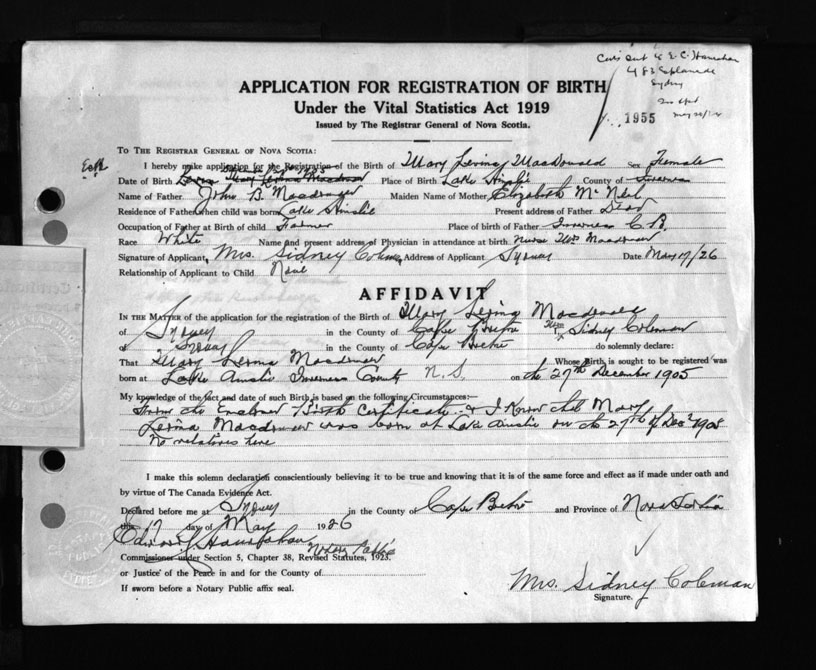 Cert sent to E.C. Hanrahan
483 Esplanade
Sydney
APPLICATION FOR REGISTRATION OF BIRTH
Under the Vital Statistics Act 1919
Issued by The Registrar General of Nova Scotia.
1955
TO THE REGISTRAR GENERAL OF NOVA SCOTIA:
I hereby make application for the Registration of the Birth of Mary Lerina MacDonald Sex Female
Date of Birth Place of Birth Lake Ainslie County of Inverness
Name of Father John B. Maiden Name of Mother Elizabeth McNeil
Residence of Father when child was born Lake Ainslie Present address of Father Dead
Occupation of Father at Birth of child Farmer Place of birth of Father Inverness C.B.
Race White Name and present address of Physician in attendance at birth Nurse
Signature of Applicant Mrs. Sidney Coleman Address of Applicant Sydney Date May 17/26
Relationship of Applicant to Child None
AFFIDAVIT
IN THE MATTER of the application for the registration of the Birth of Mary Macdonald
of Sydney in the County of Cape Breton I, Sidney Coleman
of Sydney in the County of Cape Breton do solemnly declare:
That Mary Whose Birth is sought to be registered was
born at Lake Ainslie Inverness County N.S. on the 27th December 1905
My knowledge of the fact and date of such Birth is based on the following Circumstances:—
From the Enclosed Birth Certificate & I Know that Mary
was born at Lake Ainslie on the 27th of Dec 1905
No relatives here
I make this solemn declaration conscientiously believing it to be true and knowing that it is of the same force and effect as if made under oath and
by virtue of The Canada Evidence Act.
Declared before me at Sydney in the County of Cape Breton and Province of Nova Scotia
this 17 day of May 1926
Notary Public
Commissioner under Section 5, Chapter 38, Revised Statutes, 1923.
or Justice of the Peace in and for the County of
If sworn before a Notary Public affix seal.
Mrs. Sidney Coleman
Signature.